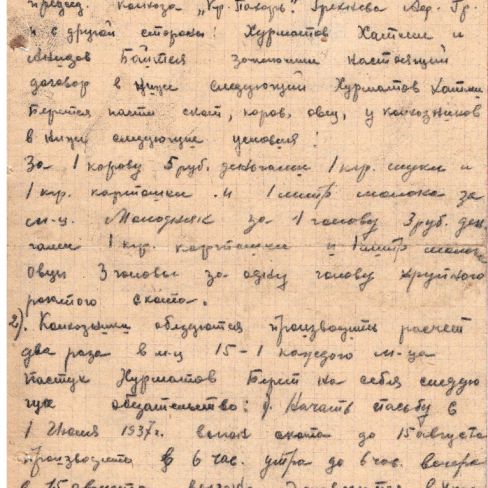 председ. колхоза „Кр. Пахарь". Грехнева
и с другой стороны: Нурматов Хатим и
Байтея заключили настоящий
договор в ниже следующий Нурматов Хатим
Берется пасти скот, коров, овец, у колхозников
в ниже следующие условия:
За 1 корову 5 руб. деньгами 1 клр. муки и
1 клр. картошки и 1 литр молока за
м-ц. Молодняк за 1 голову 3 руб. день
гами 1 клр. картошки и 1 литр молок
Овцы 3 головы за одну голову крупного
рогатого скота.
2). Колхозники обязуются производить расчет
два раза в м-ц 15-1 каждого м-ца
Пастух Нурматов Берет на себя следую
щие обязательство: Начать пасьбу с
1 Июня 1937 г. скота до 15 августа
производить в 6 час. утра до 6 час. вечера
15 августа